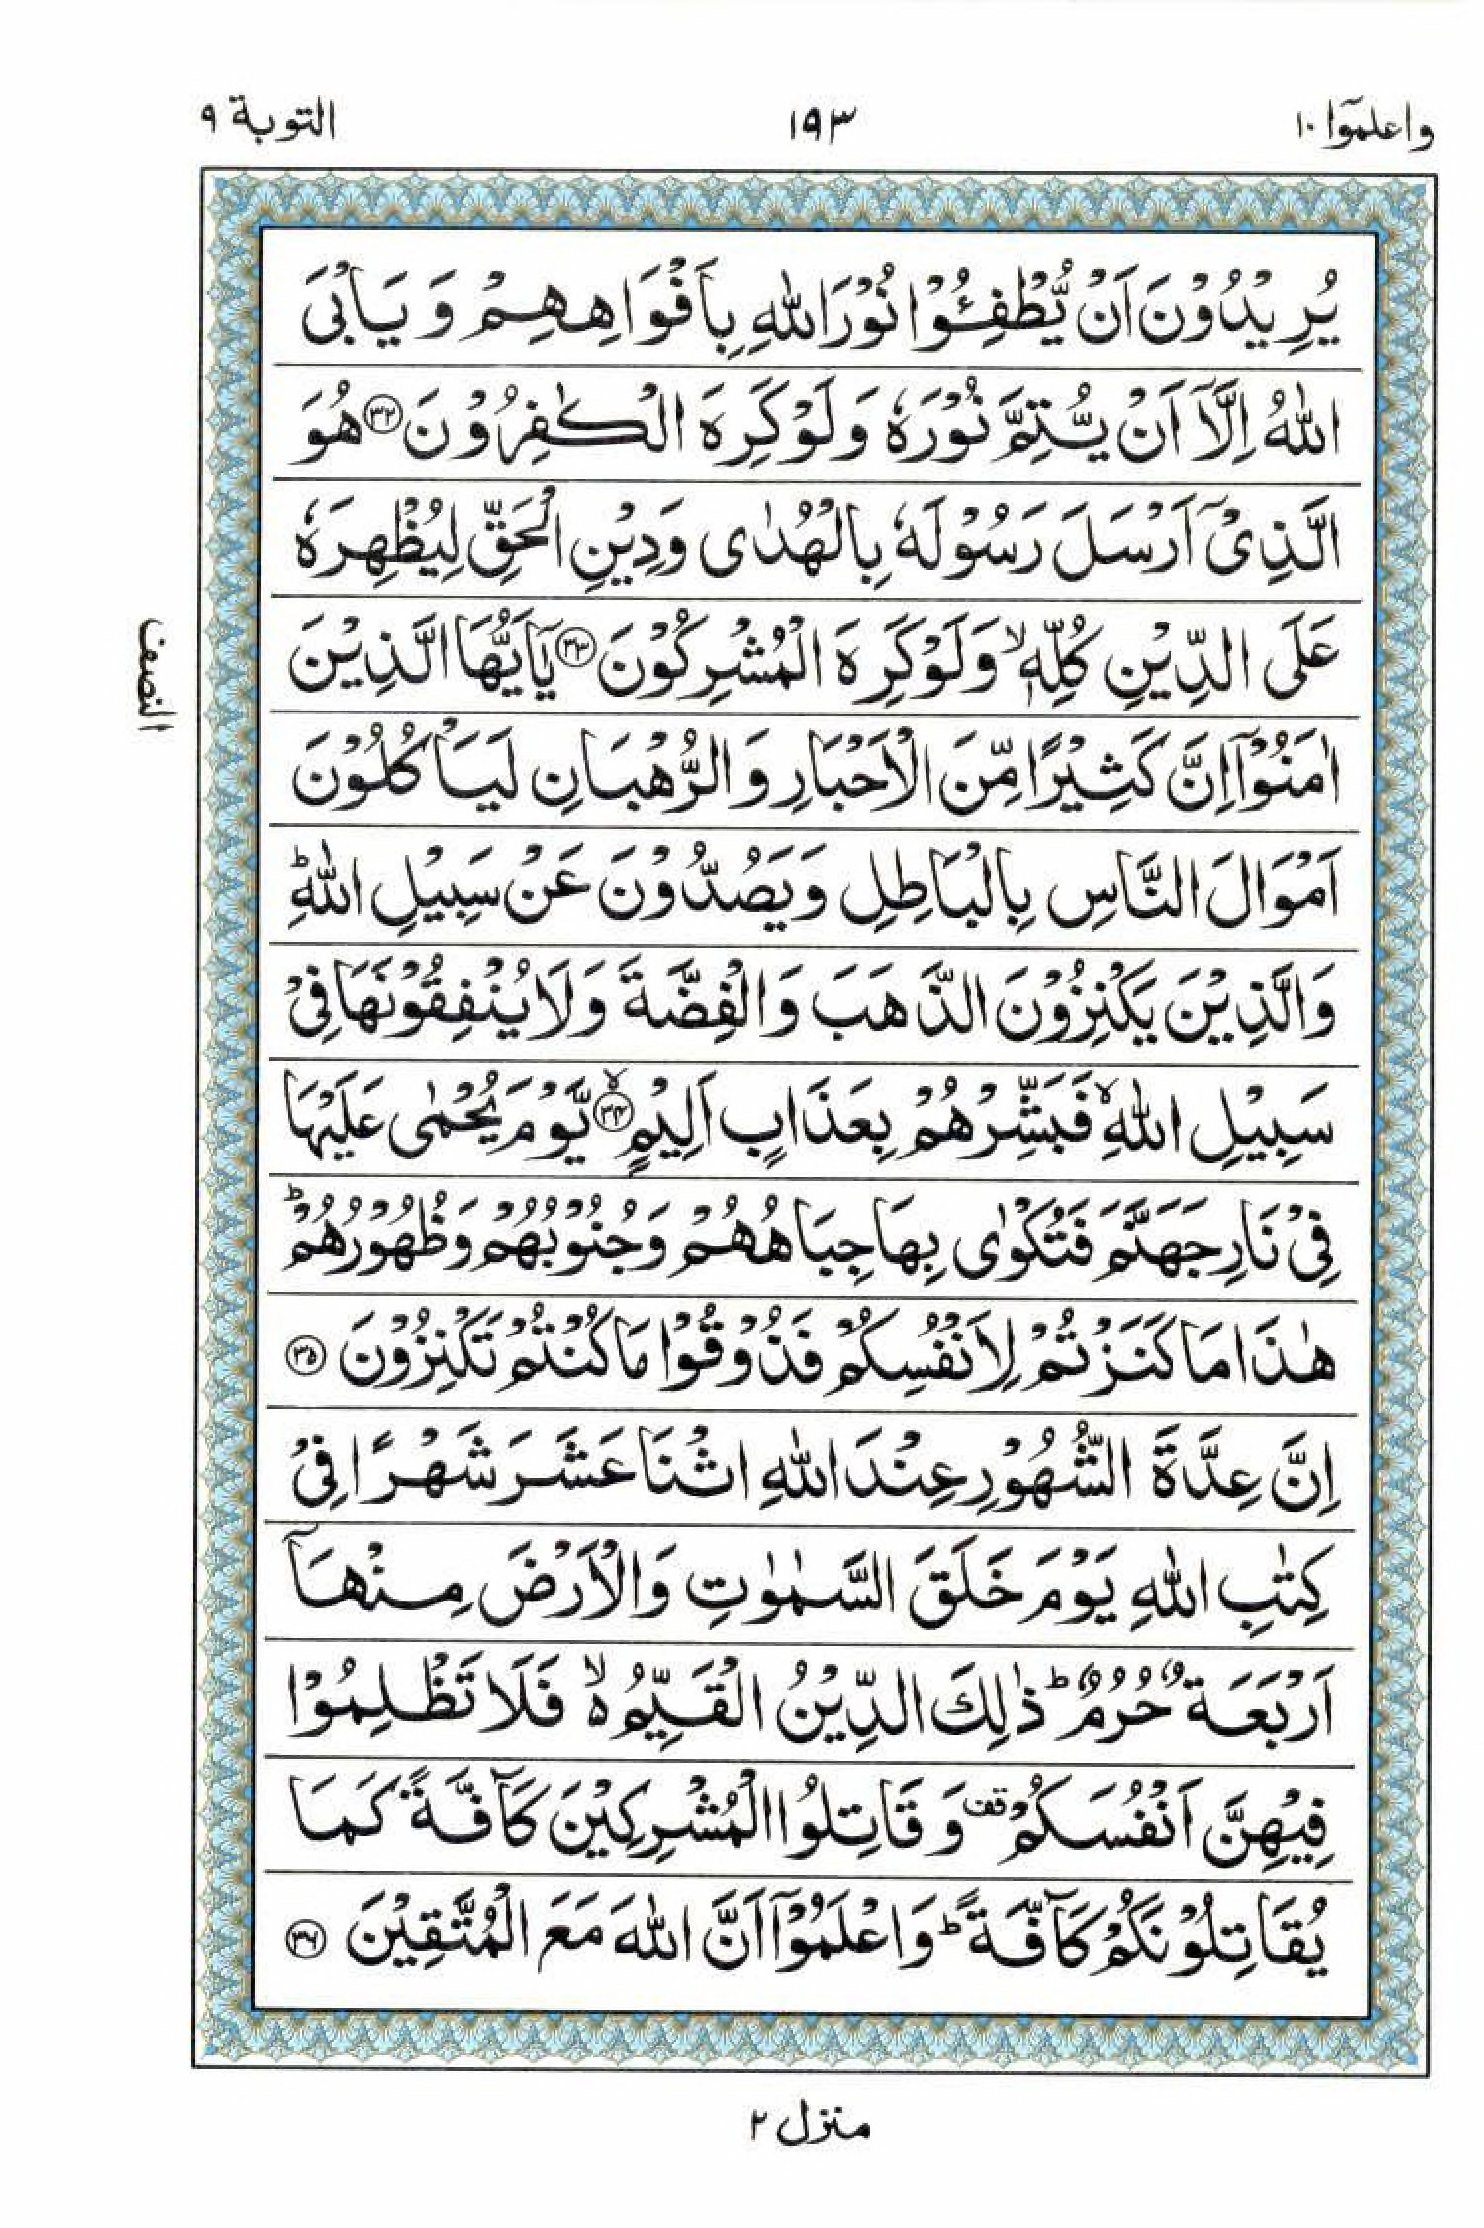 واعلموٓا ١٠
١٩٣
التوبة ٩
يُرِيْدُوْنَ اَنْ يُّطْفِـُٔوْا نُوْرَ اللّٰهِ بِاَفْوَاهِهِمْ وَيَاْبَى
اللّٰهُ اِلَّاۤ اَنْ يُّتِمَّ نُوْرَهٗ وَلَوْ كَرِهَ الْكٰفِرُوْنَ ﴿٣٢﴾ هُوَ
الَّذِىْۤ اَرْسَلَ رَسُوْلَهٗ بِالْهُدٰى وَدِيْنِ الْحَقِّ لِيُظْهِرَهٗ
عَلَى الدِّيْنِ كُلِّهٖۙ وَلَوْ كَرِهَ الْمُشْرِكُوْنَ ﴿٣٣﴾ يٰۤاَيُّهَا الَّذِيْنَ
اٰمَنُوْۤا اِنَّ كَثِيْرًا مِّنَ الْاَحْبَارِ وَالرُّهْبَانِ لَيَاْكُلُوْنَ
اَمْوَالَ النَّاسِ بِالْبَاطِلِ وَيَصُدُّوْنَ عَنْ سَبِيْلِ اللّٰهِؕ
وَالَّذِيْنَ يَكْنِزُوْنَ الذَّهَبَ وَالْفِضَّةَ وَلَا يُنْفِقُوْنَهَا فِىْ
سَبِيْلِ اللّٰهِۙ فَبَشِّرْهُمْ بِعَذَابٍ اَلِيْمٍ ﴿٣٤﴾ۙ يَّوْمَ يُحْمٰى عَلَيْهَا
فِىْ نَارِ جَهَنَّمَ فَتُكْوٰى بِهَا جِبَاهُهُمْ وَجُنُوْبُهُمْ وَظُهُوْرُهُمْؕ
هٰذَا مَا كَنَزْتُمْ لِاَنْفُسِكُمْ فَذُوْقُوْا مَا كُنْتُمْ تَكْنِزُوْنَ ﴿٣٥﴾
اِنَّ عِدَّةَ الشُّهُوْرِ عِنْدَ اللّٰهِ اثْنَا عَشَرَ شَهْرًا فِىْ
كِتٰبِ اللّٰهِ يَوْمَ خَلَقَ السَّمٰوٰتِ وَالْاَرْضَ مِنْهَاۤ
اَرْبَعَةٌ حُرُمٌؕ ذٰلِكَ الدِّيْنُ الْقَيِّمُ ۙ فَلَا تَظْلِمُوْا
فِيْهِنَّ اَنْفُسَكُمْقف وَقَاتِلُوا الْمُشْرِكِيْنَ كَآفَّةً كَمَا
يُقَاتِلُوْنَكُمْ كَآفَّةًؕ وَاعْلَمُوْۤا اَنَّ اللّٰهَ مَعَ الْمُتَّقِيْنَ ﴿٣٦﴾
النصف
منزل ٢